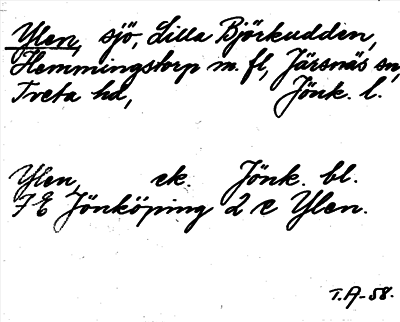 Ylen, sjö, Lilla Björkudden,
Hemmingstorp m. fl, Järsnäs sn,
Tveta hd, Jönk. l.
Ylen, ek. Jönk. bl.
7 E Jönköping 2 c Ylen.
T.A-58.